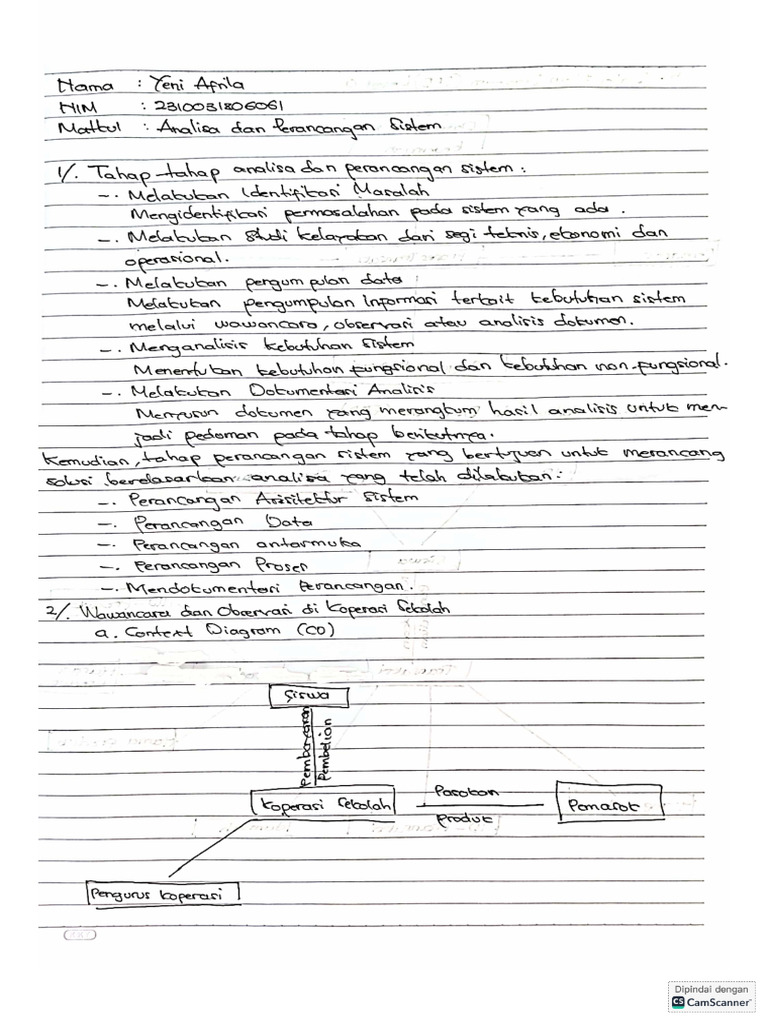 Nama : Yeni Afrila
NIM : 2310031806061
Matkul : Analisa dan Perancangan Sistem
1/. Tahap-tahap analisa dan perancangan sistem :
-. Melakukan Identifikasi Masalah
Mengidentifikasi permasalahan pada sistem yang ada .
-. Melakukan Studi kelayakan dari segi teknis, ekonomi dan
operasional.
-. Melakukan pengumpulan data :
Melakukan pengumpulan Informasi terkait kebutuhan sistem
melalui wawancara, observasi atau analisis dokumen.
-. Menganalisis kebutuhan Sistem
Menentukan kebutuhan fungsional dan kebutuhan non-fungsional.
-. Melakukan Dokumentasi Analisis
Menyusun dokumen yang merangkum hasil analisis untuk men-
jadi pedoman pada tahap berikutnya.
Kemudian, tahap perancangan sistem yang bertujuan untuk merancang
solusi berdasarkan analisa yang telah dilakukan :
-. Perancangan Arsitektur Sistem
-. Perancangan Data
-. Perancangan antarmuka
-. Perancangan Proses
-. Mendokumentasi Perancangan.
2/. Wawancara dan Observasi di Koperasi Sekolah
a. Context Diagram (CD)
Siswa
Pembayaran
Pembelian
Koperasi Sekolah
Pasokan
Produk
Pemasok
Pengurus Koperasi
Dipindai dengan
CS CamScanner